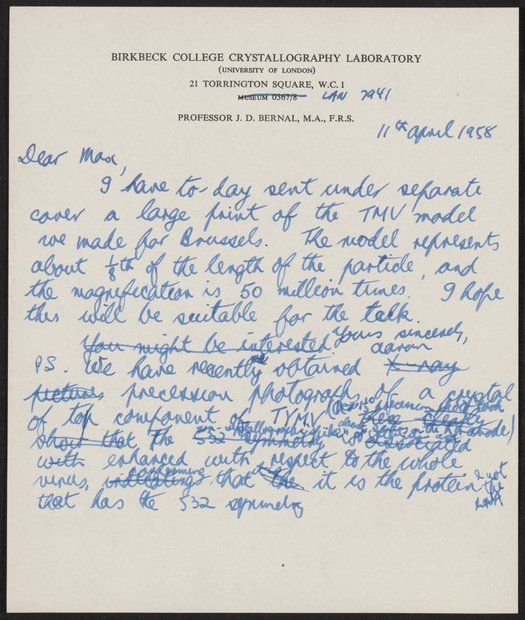 BIRKBECK COLLEGE CRYSTALLOGRAPHY LABORATORY
(UNIVERSITY OF LONDON)
21 TORRINGTON SQUARE, W.C.1
MUSEUM 0367/8 LAN 7941
PROFESSOR J. D. BERNAL, M.A., F.R.S.
11th April 1958
Dear Max,
I have to-day sent under separate
cover a large print of the TMV model
we made for Brussels. The model represents
about 1/8th of the length of the particle, and
the magnification is 50 million times. I hope
this will be suitable for the talk.
You might be interested Yours sincerely,
Aaron
PS. We have recently obtained X-ray
pictures precession photographs of a crystal
of top component of TYMV
show that the 532 symmetry
with enhanced with respect to the whole
virus, indicating that the it is the protein & not
the RNA
that has the 532 symmetry